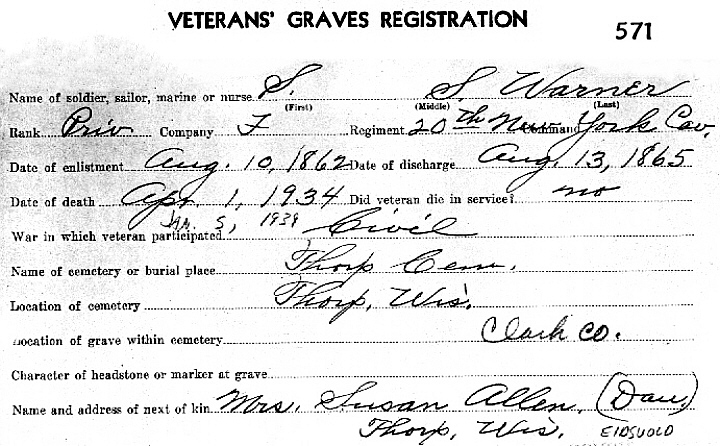 VETERANS' GRAVES REGISTRATION
571
Name of soldier, sailor, marine or nurse S. S. Warner
(First) (Middle) (Last)
Rank Priv Company F Regiment 20th New York Cav.
Date of enlistment Aug. 10, 1862 Date of discharge Aug. 13, 1865
Date of death Apr. 1, 1934 Did veteran die in service? no
Jan. 5, 1939
War in which veteran participated Civil
Name of cemetery or burial place Thorp Cem.
Location of cemetery Thorp, Wis.
Location of grave within cemetery Clark Co.
Character of headstone or marker at grave
Name and address of next of kin Mrs. Susan Allen, (Dau.)
Thorp, Wis. EIDSVOLD